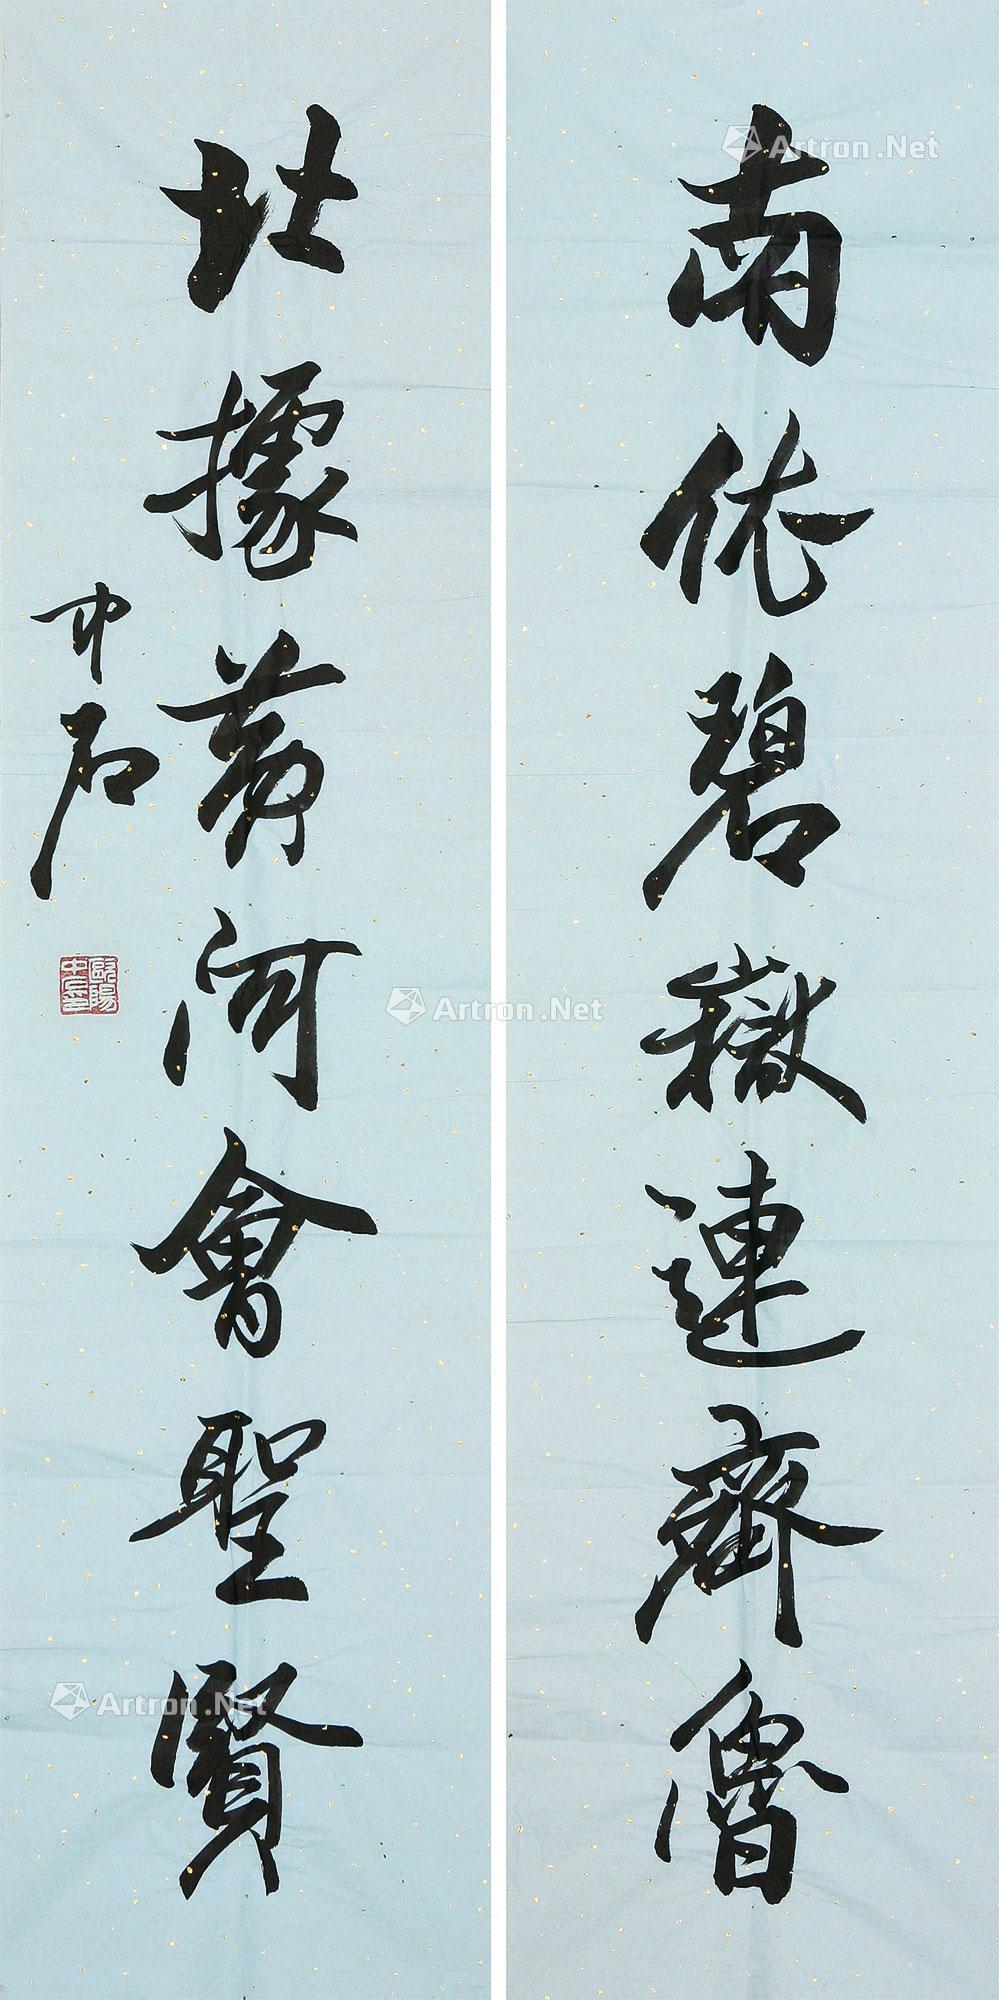 南依碧嶽連齊魯
北據黄河會聖賢
中石
歐陽中石
Artron.Net
Artron.Net
Artron.Net